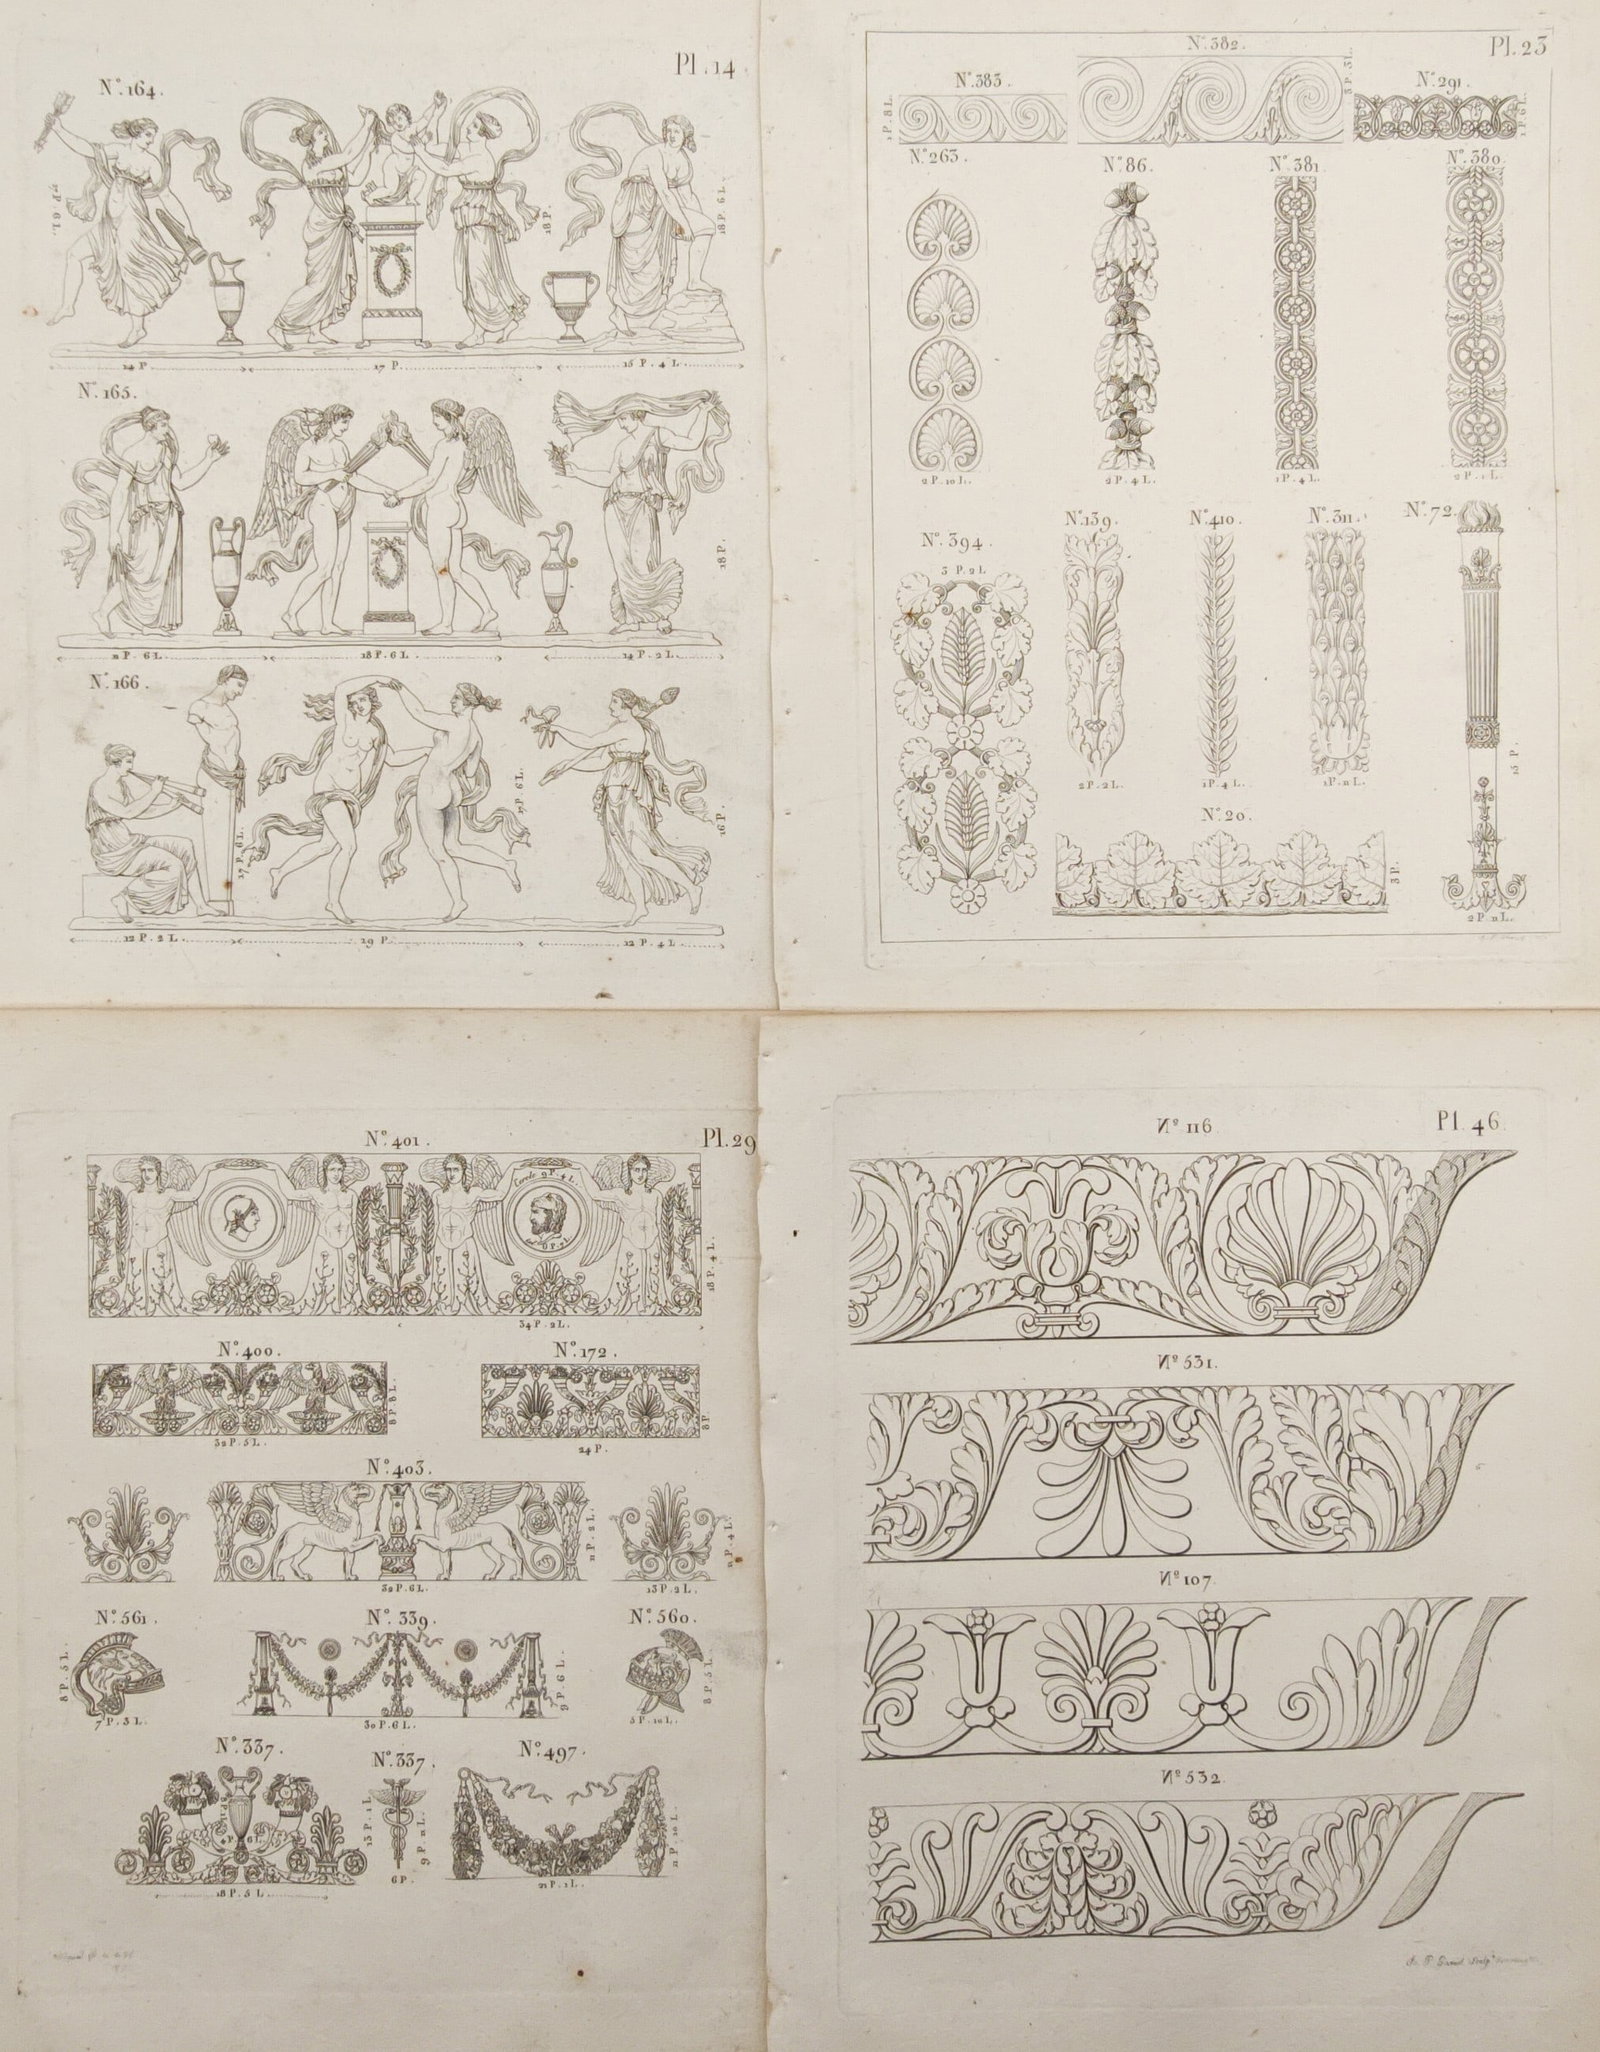 Pl. 14
Nº. 164.
17 P. 6 L.
18 P.
18 P. 6 L.
14 P.
17 P.
15 P. 4 L.
Nº. 165.
18 P.
11 P. 6 L.
18 P. 6 L.
14 P. 2 L.
Nº. 166.
17 P. 6 L.
16 P.
12 P. 2 L.
19 P.
12 P. 4 L.
Pl. 23
Nº. 382.
Nº. 383.
Nº. 291.
1 P. 8 L.
3 P. 3 L.
1 P. 6 L.
Nº. 263.
Nº. 86.
Nº. 381
Nº. 380.
2 P. 10 L.
2 P. 4 L.
1 P. 4 L.
2 P. 1 L.
Nº. 394.
Nº. 139.
Nº. 410.
Nº. 311.
Nº. 72.
3 P. 2 L
2 P. 2 L.
1 P. 4 L.
1 P. 11 L.
Nº. 20.
3 P.
23 P.
2 P. 11 L.
Pl. 29
Nº. 401.
Cercle 9 P. 4 L.
18 P. 4 L.
34 P. 2 L.
Nº. 400.
Nº. 172.
8 P. 8 L.
8 P.
32 P. 5 L.
24 P.
Nº. 403.
11 P. 2 L.
11 P. 4 L.
32 P. 6 L.
13 P. 2 L.
Nº. 561.
Nº. 339.
Nº. 560.
8 P. 5 L.
9 P. 6 L.
8 P. 5 L.
7 P. 3 L.
30 P. 6 L.
5 P. 10 L.
Nº. 337.
Nº. 337.
Nº. 497.
4 P. 6 L.
13 P. 1 L.
9 P. 11 L.
11 P. 10 L.
18 P. 5 L.
6 P.
21 P. 1 L.
Pl. 46
Nº 116.
Nº 531.
Nº 107
Nº 532.